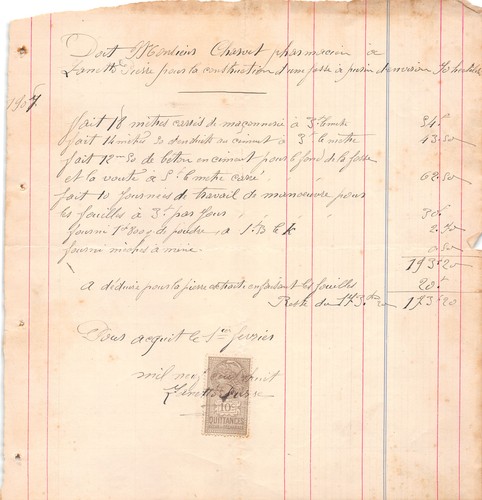 Doit Monsieur Charvet pharmacien à
Pierre pour la construction d'une fosse à purin d'environ 70 hectolitres
1907
fait 18 mètres carrés de maçonnerie à 3f le metre 54f
fait 14 mètres 50 d'enduits au ciment à 3f le metre 43.50
fait 12m 50 de beton en ciment pour le fond de la fosse
et la voute à 5f le metre carré 62.50
fait 10 journées de travail de manoeuvre pour
les fouilles à 3f par jour 30f
fourni de poudre, à 2.70
fourni mèches a mine 0.50
193f20
A déduire pour la pierre extraite en faisant les fouilles 20f
Reste du 173f20 173f20
Pour acquit le 1er fevrier
mil neuf cent huit
Pierre
10c
QUITTANCES